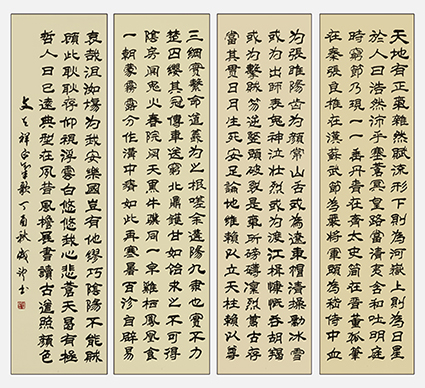 天地有正氣雜然賦流形下則為河嶽上則為日星
於人曰浩然沛乎塞蒼冥皇路當清夷含和吐明庭
時窮節乃現一一垂丹青在齊太史簡在晉董狐筆
在秦張良椎在漢蘇武節為嚴將軍頭為嵇侍中血
為張睢陽齒為顏常山舌或為遼東帽清操勵冰雪
或為出師表鬼神泣壯烈或為渡江楫慷慨吞胡羯
或為擊賊笏逆豎頭破裂是氣所磅礴凜烈萬古存
當其貫日月生死安足論地維賴以立天柱賴以尊
三綱實繫命道義為之根嗟余遘陽九隸也實不力
楚囚纓其冠傳車送窮北鼎鑊甘如飴求之不可得
陰房闃鬼火春院閟天黑牛驥同一皁雞棲鳳凰食
一朝蒙霧露分作溝中瘠如此再寒暑百沴自辟易
哀哉沮洳場為我安樂國豈有他繆巧陰陽不能賊
顧此耿耿存仰視浮雲白悠悠我心悲蒼天曷有極
哲人日已遠典型在夙昔風檐展書讀古道照顏色
文天祥正氣歌丁酉秋書